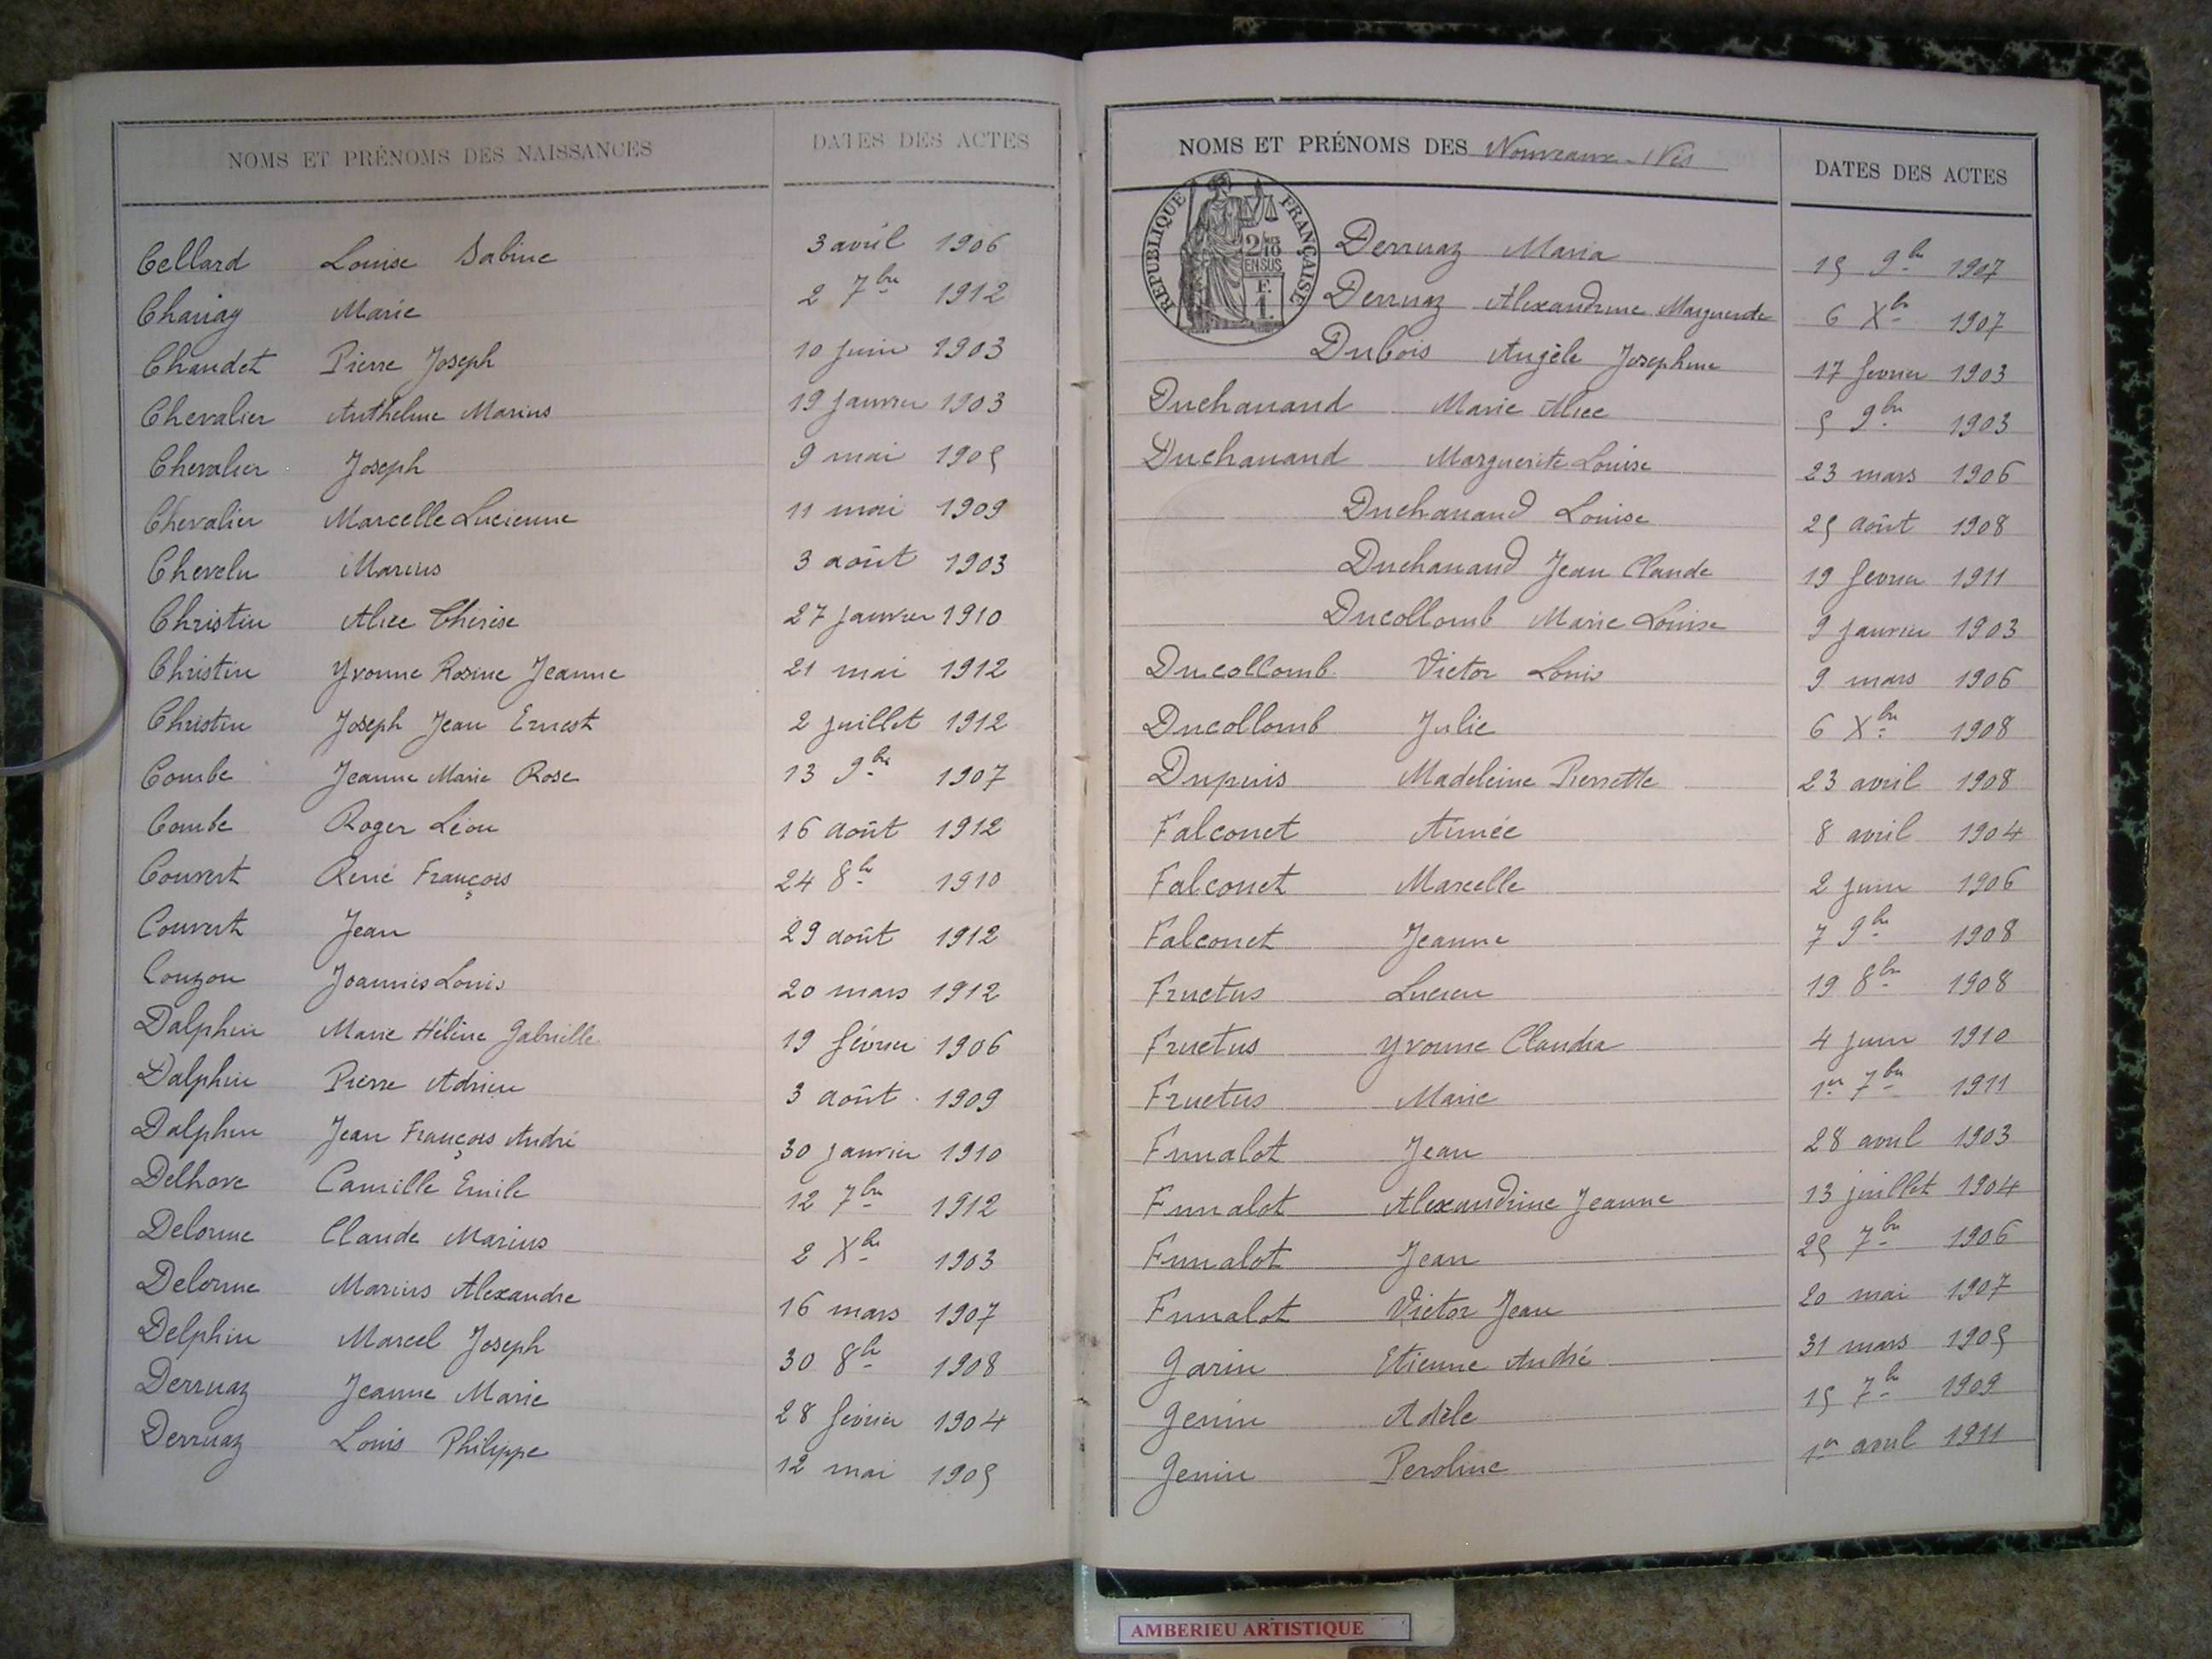 NOMS ET PRÉNOMS DES NAISSANCES DATES DES ACTES
Cellard Louise Sabine 3 avril 1906
Marie 2 7bre 1912
Chaudet Pierre Joseph 10 juin 1903
Chevalier Anthelme Marius 19 janvier 1903
Chevalier Joseph 9 mai 1905
Chevalier Marcelle Lucienne 11 mai 1909
Chevelu Marius 3 août 1903
Christin Alice Thérèse 27 janvier 1910
Christin Yvonne Rosine Jeanne 21 mai 1912
Christin Joseph Jean Ernest 2 juillet 1912
Combe Jeanne Marie Rose 13 9bre 1907
Combe Roger Léon 16 août 1912
Convert René François 24 8bre 1910
Convert Jean 29 août 1912
Couzon Joannès Louis 20 mars 1912
Dalphin Marie Hélène Gabrielle 19 février 1906
Dalphin Pierre Adrien 3 août 1909
Dalphin Jean François André 30 janvier 1910
Delhove Camille Emile 12 7bre 1912
Delorme Claude Marius 2 Xbre 1903
Delorme Marius Alexandre 16 mars 1907
Delphin Marcel Joseph 30 8bre 1908
Derruaz Jeanne Marie 28 février 1904
Derruaz Louis Philippe 12 mai 1905
NOMS ET PRÉNOMS DES Nouveaux-Nés DATES DES ACTES
RÉPUBLIQUE FRANÇAISE
2/10MES
EN SUS
F.
1.
Derruaz Maria 15 9bre 1907
Derruaz Alexandrine Marguerite 6 Xbre 1907
Dubois Angèle Josephine 17 février 1903
Duchanand Marie Alice 5 9bre 1903
Duchanand Marguerite Louise 23 mars 1906
Duchanand Louise 25 août 1908
Duchanand Jean Claude 19 février 1911
Ducollomb Marie Louise 9 janvier 1903
Ducollomb Victor Louis 9 mars 1906
Ducollomb Julie 6 Xbre 1908
Dupuis Madeleine Pierrette 23 avril 1908
Falconet Aimée 8 avril 1904
Falconet Marcelle 2 juin 1906
Falconet Jeanne 7 9bre 1908
Fructus Lucien 19 8bre 1908
Fructus Yvonne Claudia 4 juin 1910
Fructus Marie 1er 7bre 1911
Fumalot Jean 28 avril 1903
Fumalot Alexandrine Jeanne 13 juillet 1904
Fumalot Jean 25 7bre 1906
Fumalot Victor Jean 20 mai 1907
Garin Etienne André 31 mars 1905
Genin Adèle 15 7bre 1909
Genin Peroline 1er avril 1911
AMBERIEU ARTISTIQUE